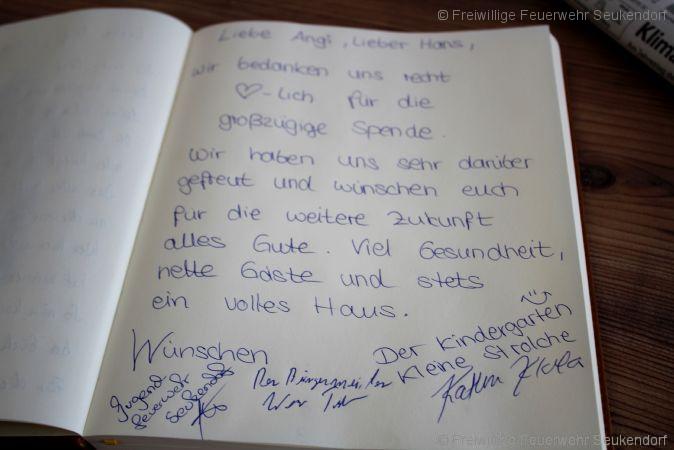 © Freiwillige Feuerwehr Seukendorf
Liebe Angi, Lieber Hans,
wir bedanken uns recht
♡-lich für die
großzügige Spende.
Wir haben uns sehr darüber
gefreut und wünschen euch
für die weitere Zukunft
alles Gute. Viel Gesundheit,
nette Gäste und stets
ein volles Haus.
Wünschen
Der Kindergarten
Kleine Strolche
Jugend
feuerwehr
Seukendorf
Der Bürgermeister
Klima
© Freiwillige Feuerwehr Seukendorf